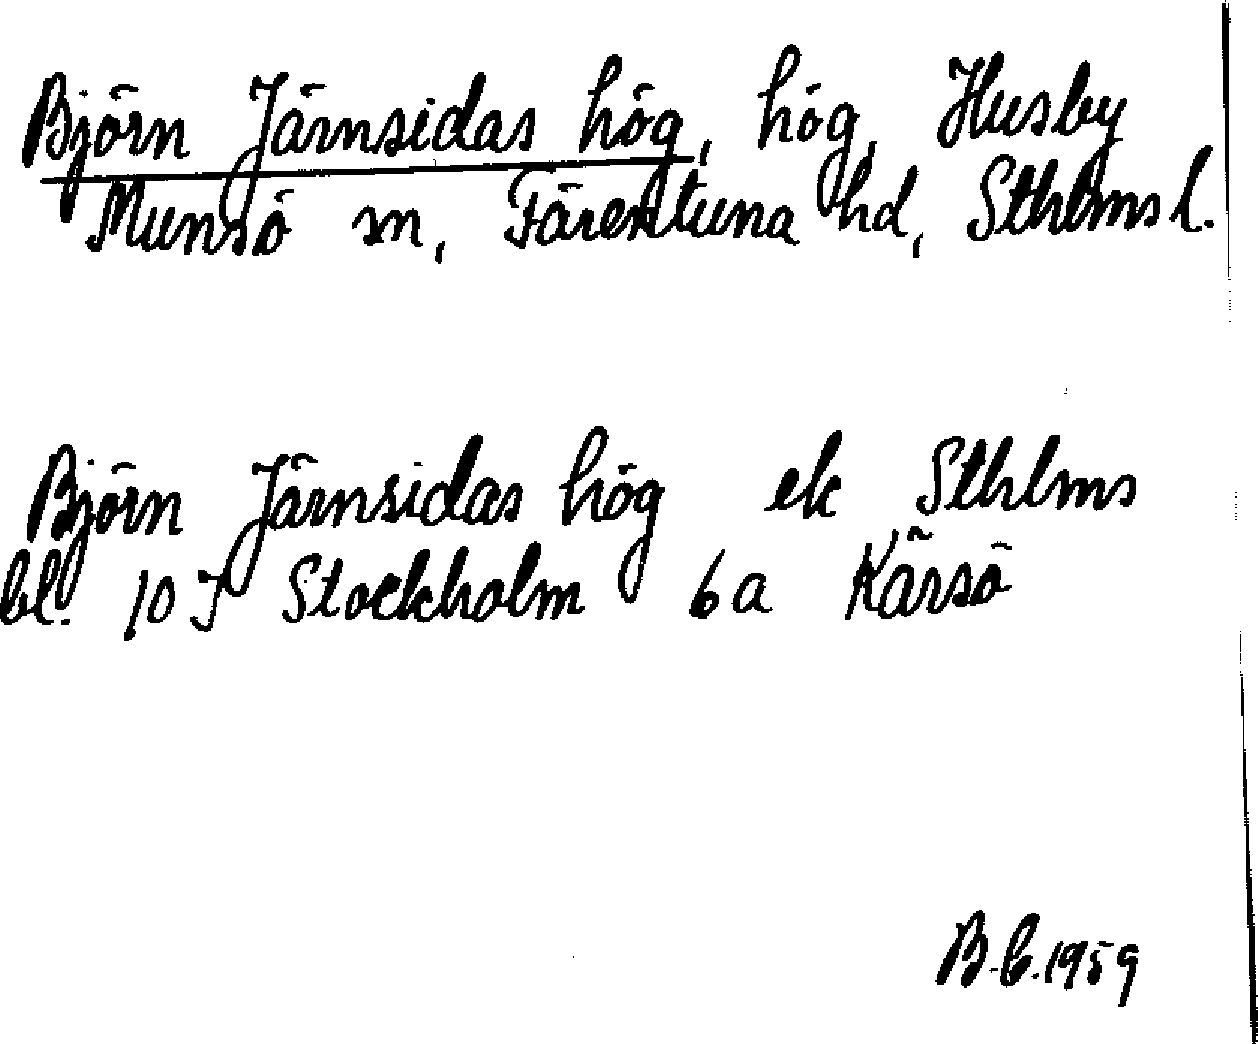 Björn Järnsidas hög, hög, Husby
Munsö sn, Färentuna hd, Sthlms l.
Björn Järnsidas hög ek Sthlms
bl. 10 J Stockholm 6a Kärsö
B.C. 1959